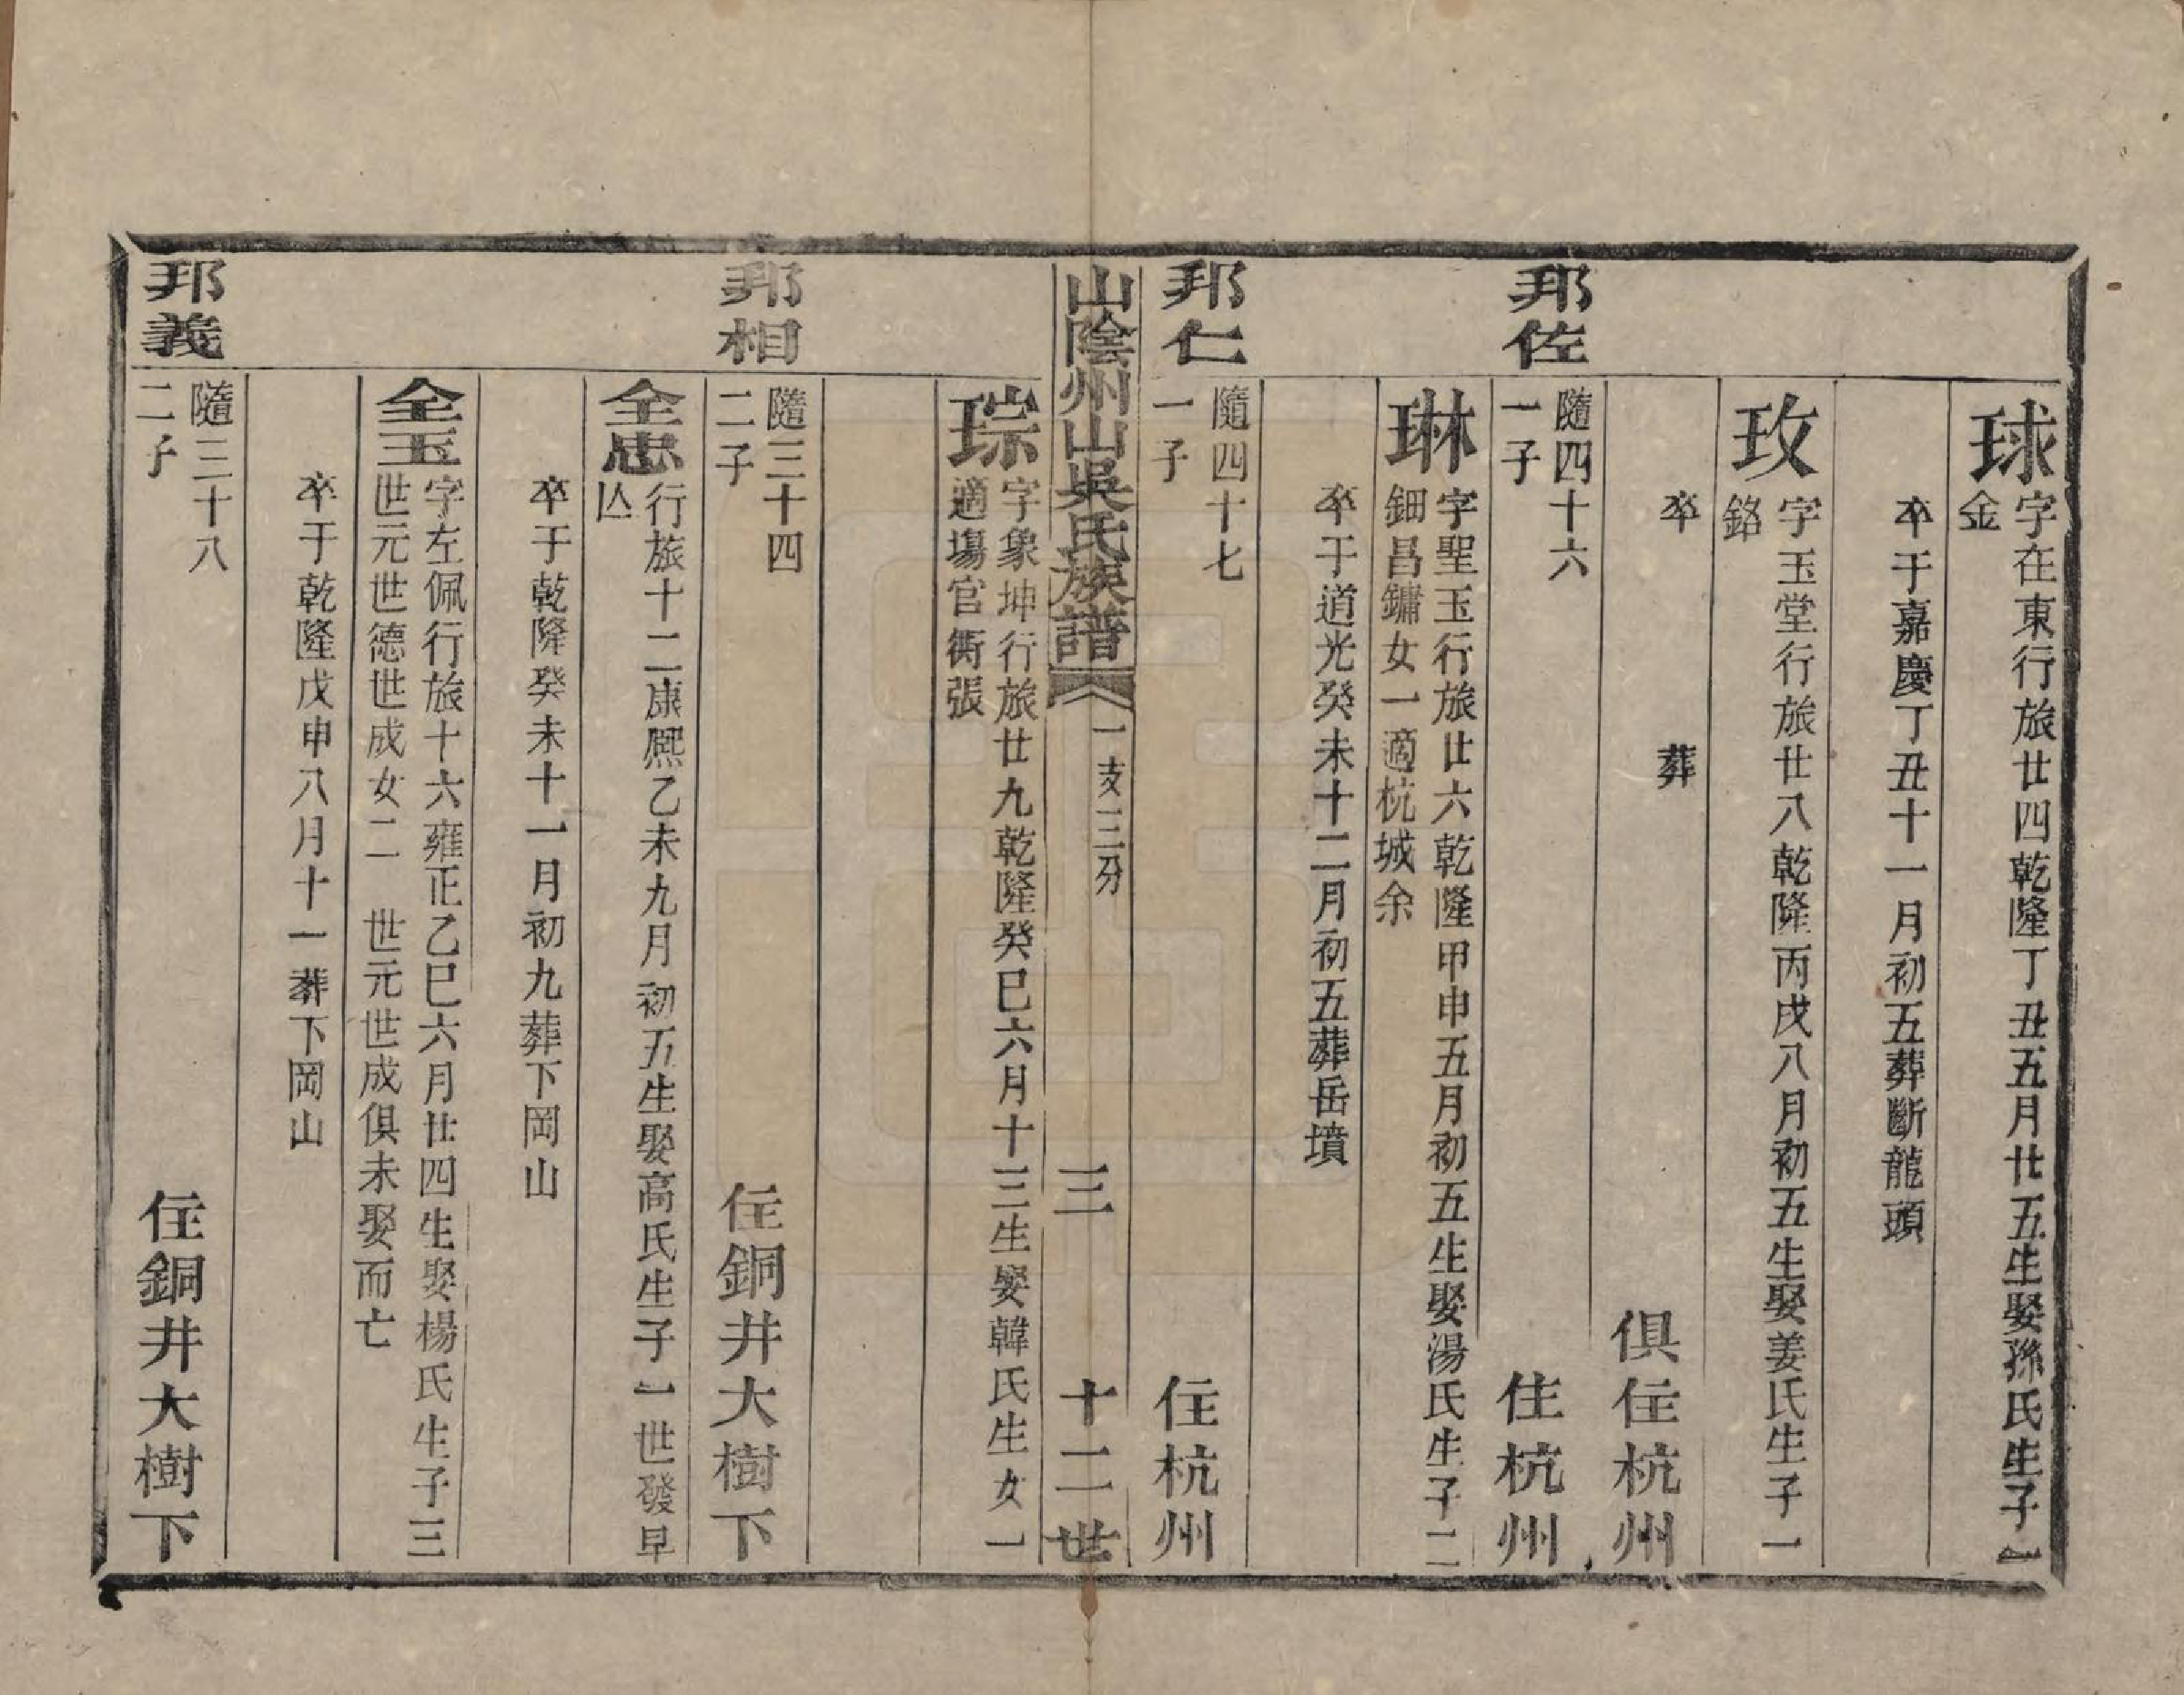 球
字在東行旅廿四乾隆丁丑五月廿五生娶孫氏生子一
金
卒于嘉慶丁丑十一月初五葬斷龍頭
玫
字玉堂行旅廿八乾隆丙戌八月初五生娶姜氏生子一
鉻
卒 葬
俱住杭州
邦佐
隨四十六
一子
住杭州
琳
字聖玉行旅廿六乾隆甲申五月初五生娶湯氏生子二
鈿昌鏞女一適杭城余
卒于道光癸未十二月初五葬岳墳
邦仁
隨四十七
一子
住杭州
山陰州山吳氏族譜
一支三分
三
十二世
琮
字象坤行旅廿九乾隆癸巳六月十三生娶韓氏生女一
適塲官衖張
邦相
隨三十四
二子
住銅井大樹下
全忠
行旅十二康熈乙未九月初五生娶高氏生子一世發早
亾
卒于乾隆癸未十一月初九葬下岡山
全玉
字左佩行旅十六雍正乙巳六月廿四生娶楊氏生子三
世元世德世成女二 世元世成俱未娶而亡
卒于乾隆戊申八月十一葬下岡山
邦義
隨三十八
二子
住銅井大樹下